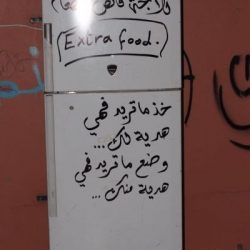 Extra food.
خذ ما تريد فهي
هدية لك...
وضع ما تريد فهي
هدية منك...